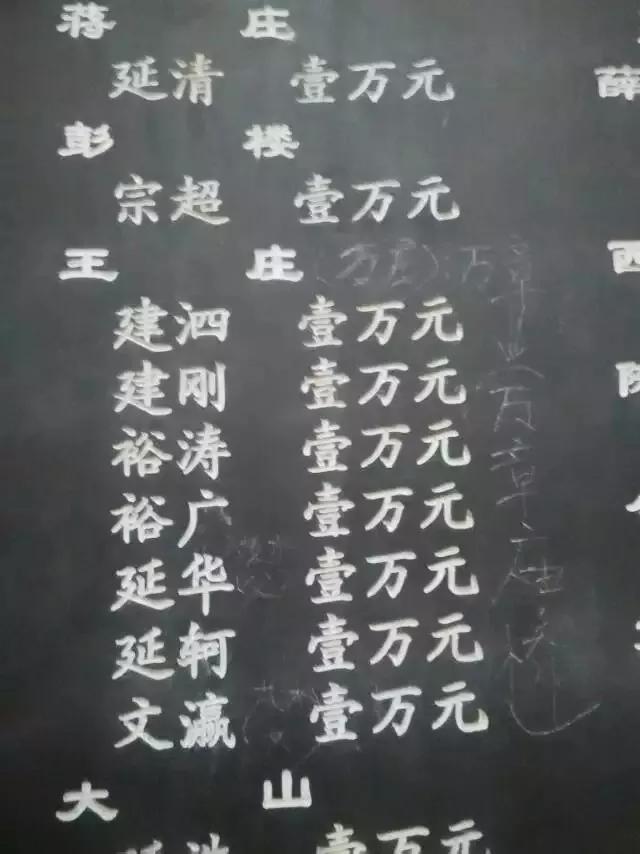 蒋 庄
延清 壹万元
薛
彭 楼
宗超 壹万元
王 庄
西
建泗 壹万元
建刚 壹万元
裕涛 壹万元
裕广 壹万元
延华 壹万元
延轲 壹万元
文瀛 壹万元
大 山
壹万元